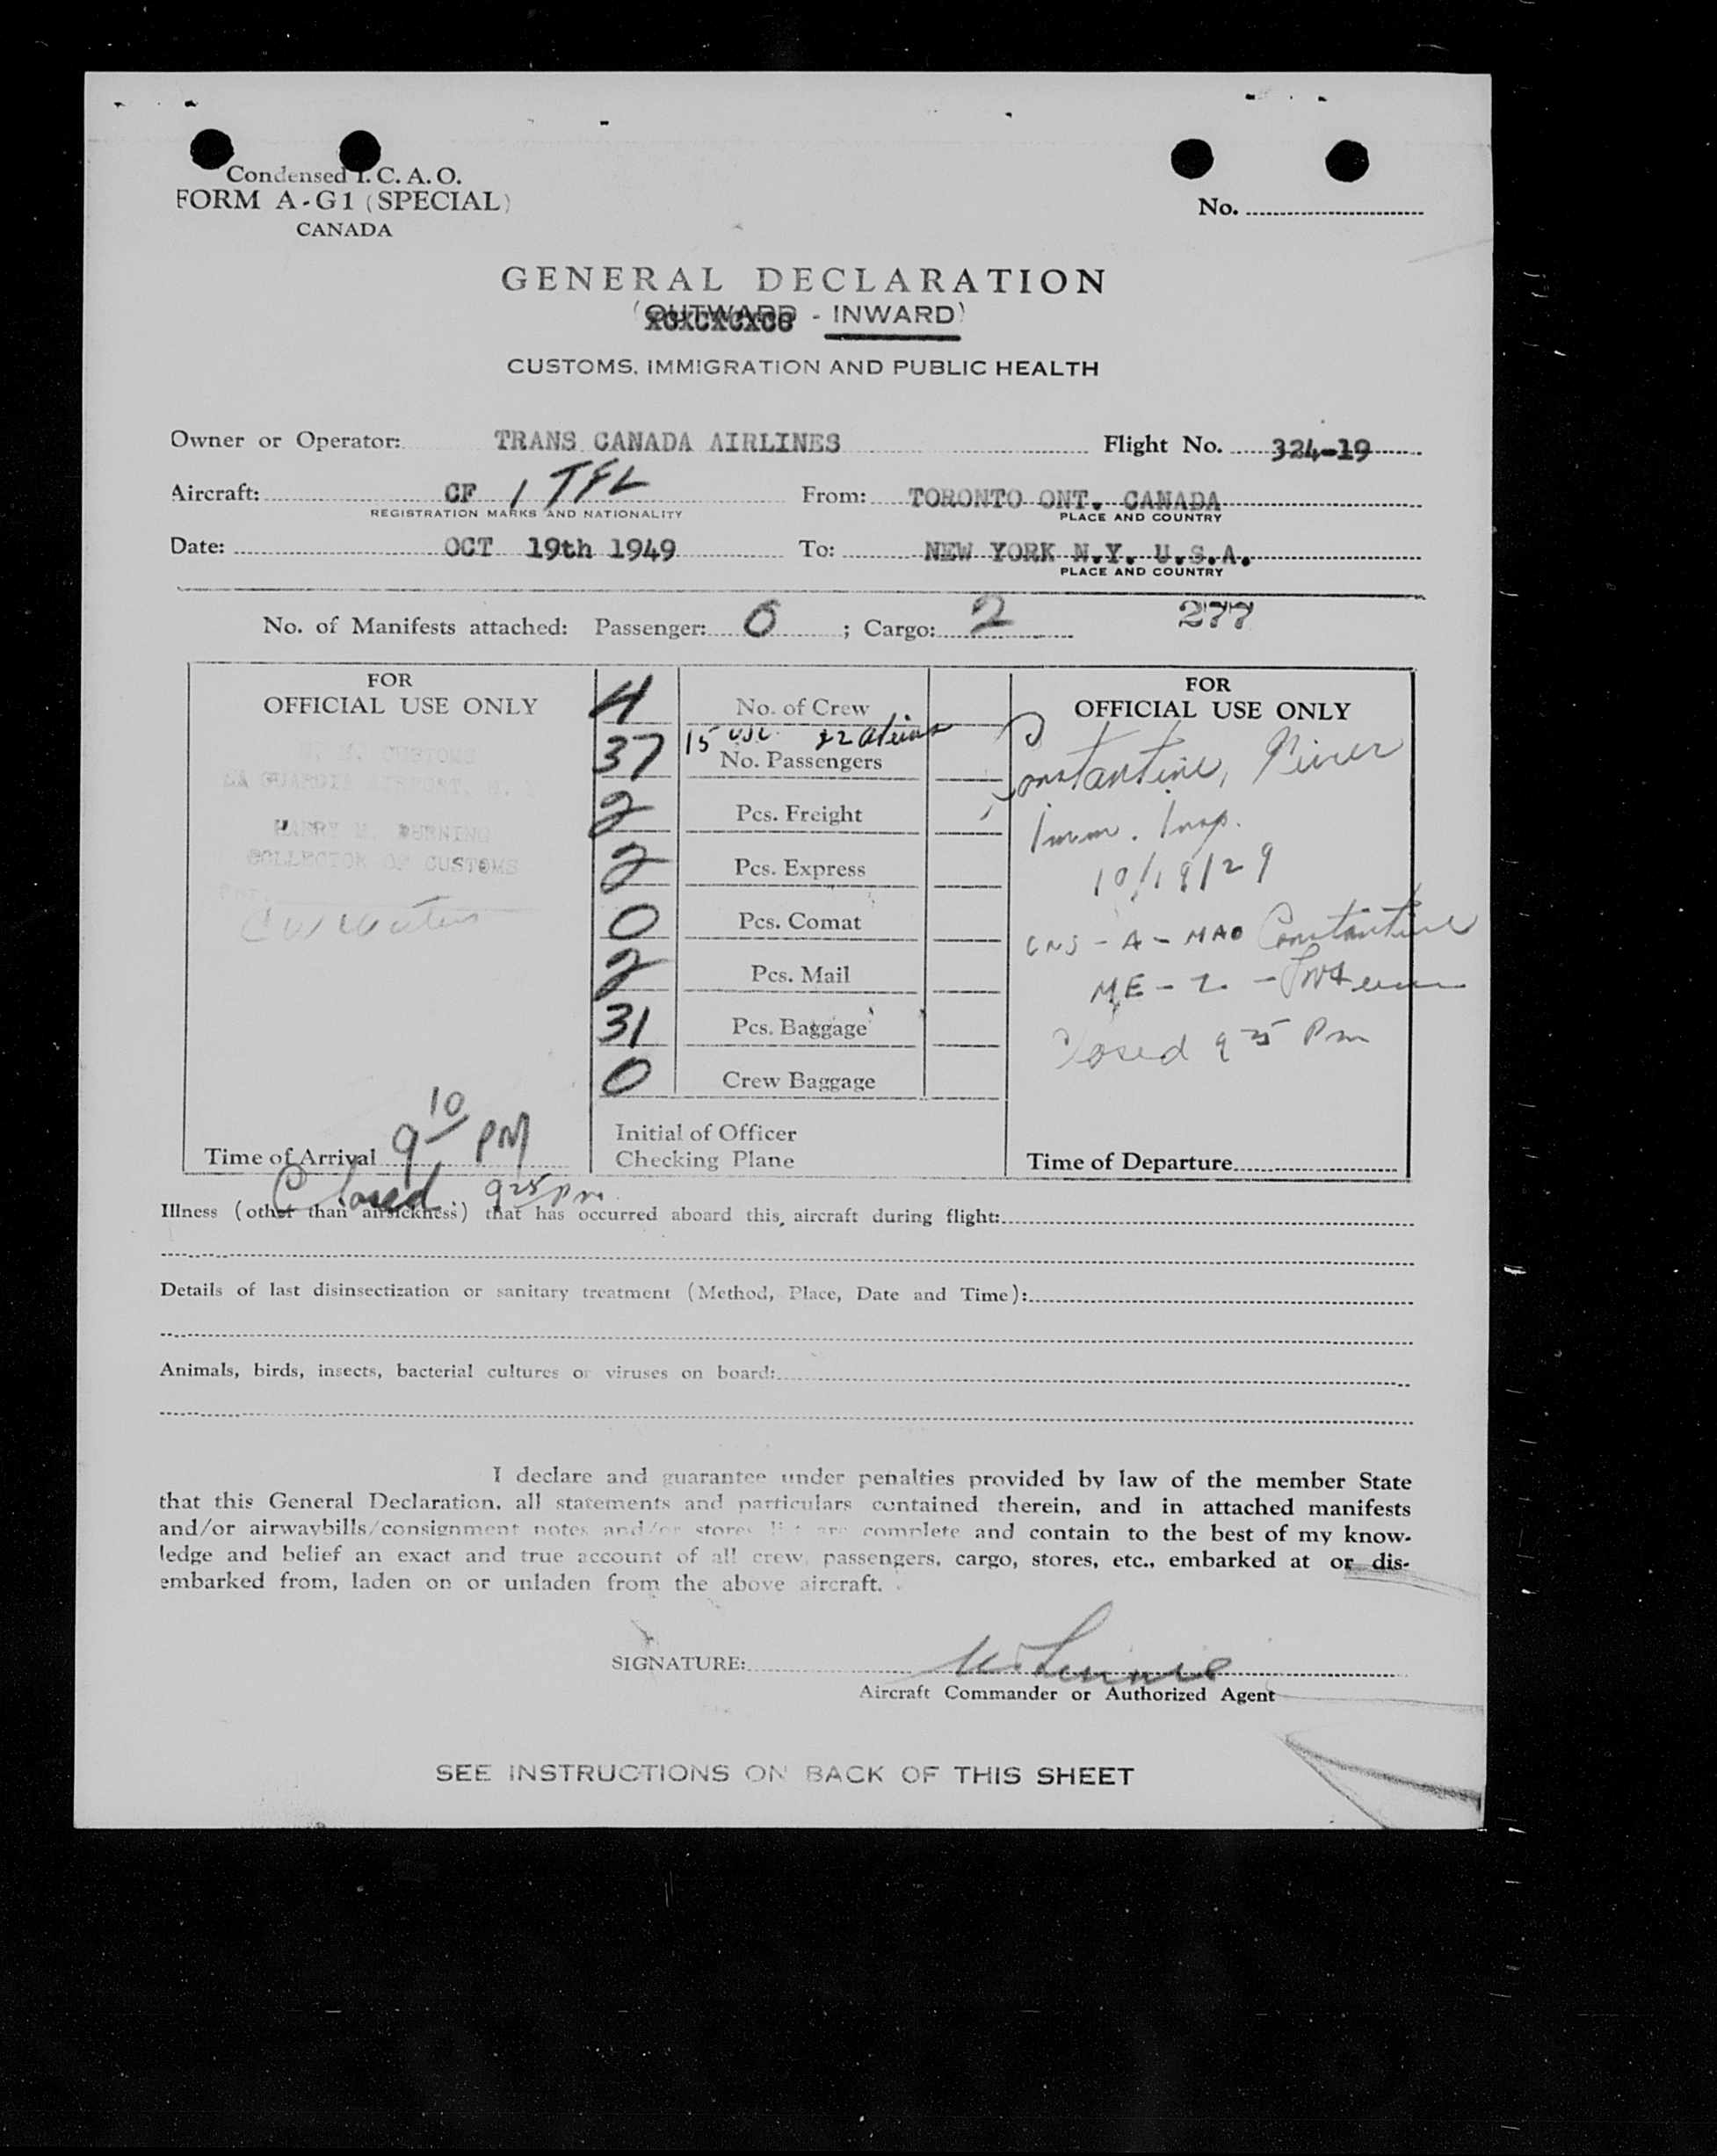 Condensed I. C. A. O.
FORM A-G1 (SPECIAL)
CANADA
No.
GENERAL DECLARATION
(OUTWARD - INWARD)
CUSTOMS, IMMIGRATION AND PUBLIC HEALTH
Owner or Operator: TRANS CANADA AIRLINES Flight No. 324-19
Aircraft: CF / TFL From: TORONTO ONT. CANADA
REGISTRATION MARKS AND NATIONALITY PLACE AND COUNTRY
Date: OCT 19th 1949 To: NEW YORK N.Y. U.S.A.
PLACE AND COUNTRY
No. of Manifests attached: Passenger: 0 ; Cargo: 2 277
FOR
OFFICIAL USE ONLY
U. S. CUSTOMS
LA GUARDIA AIRPORT, N. Y.
HARRY M. DURNING
COLLECTOR OF CUSTOMS
Time of Arrival 9 10 PM
Closed 9 25 Pm
4 No. of Crew
15 USC 22 Aliens
37 No. Passengers
2 Pcs. Freight
2 Pcs. Express
0 Pcs. Comat
2 Pcs. Mail
31 Pcs. Baggage
0 Crew Baggage
Initial of Officer
Checking Plane
FOR
OFFICIAL USE ONLY
Constantine,
Imm. Insp.
CNS - A - Constantine
ME - 2 -
Closed 9 25 Pm
Time of Departure
Illness (other than airsickness) that has occurred aboard this aircraft during flight:
Details of last disinsectization or sanitary treatment (Method, Place, Date and Time):
Animals, birds, insects, bacterial cultures or viruses on board:
I declare and guarantee under penalties provided by law of the member State
that this General Declaration, all statements and particulars contained therein, and in attached manifests
and/or airwaybills/consignment notes and/or stores list are complete and contain to the best of my know-
ledge and belief an exact and true account of all crew, passengers, cargo, stores, etc., embarked at or dis-
embarked from, laden on or unladen from the above aircraft.
SIGNATURE:
Aircraft Commander or Authorized Agent
SEE INSTRUCTIONS ON BACK OF THIS SHEET